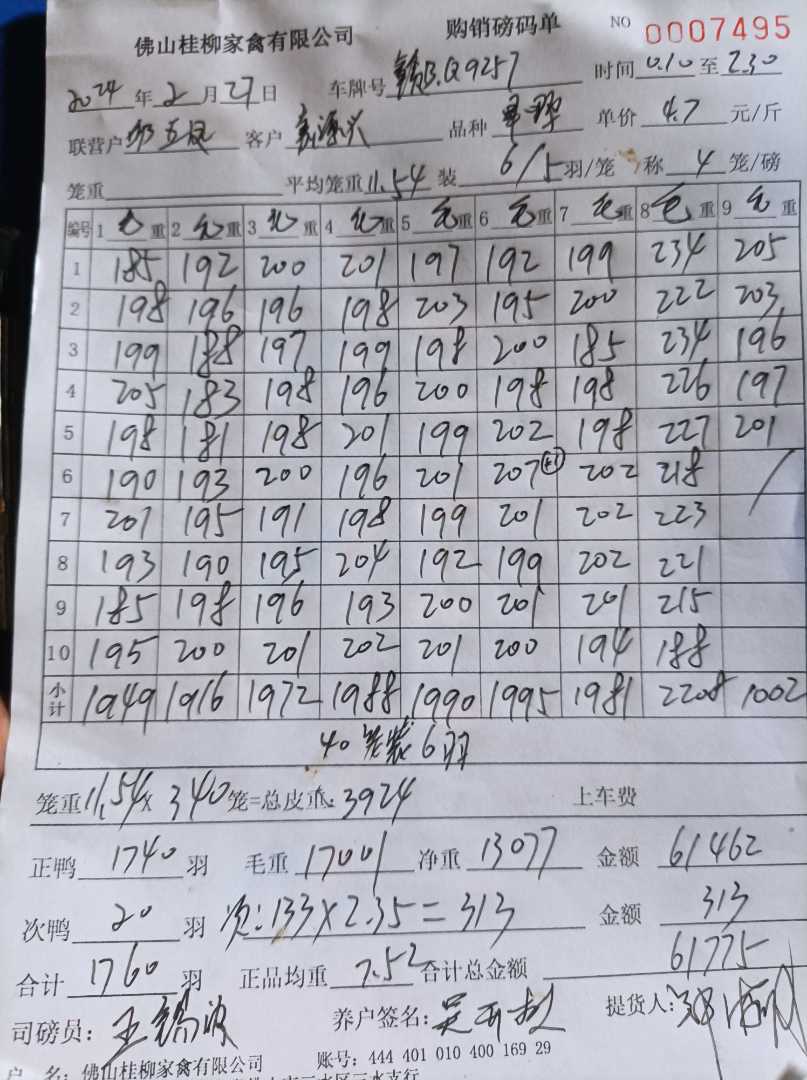 佛山桂柳家禽有限公司 购销磅码单 NO 0007495
2024年2月27日 车牌号赣B.Q9257 时间0.10至2.30
联营户 客户 品种 单价4.7元/斤
笼重 平均笼重11.54 装6/5羽/笼 称4笼/磅
编号 1毛重 2毛重 3毛重 4毛重 5毛重 6毛重 7毛重 8毛重 9毛重
1 185 192 200 201 197 192 199 234 205
2 198 196 196 198 203 195 200 222 203
3 199 188 197 199 198 200 185 234 196
4 205 183 198 196 200 198 198 226 197
5 198 181 198 201 199 202 198 227 201
6 190 193 200 196 201 207 202 218
7 201 195 191 198 199 201 202 223
8 193 190 195 204 192 199 202 221
9 185 198 196 193 200 201 201 215
10 195 200 201 202 201 200 194 188
小计 1949 1916 1972 1988 1990 1995 1981 2208 1002
40笼装6羽
笼重11.54×340笼=总皮重:3924 上车费
正鸭1740羽 毛重17001 净重13077 金额61462
次鸭20羽 次:133×2.35=313 金额313
合计1760羽 正品均重7.52 合计总金额61775
司磅员:王锡波 养户签名: 提货人:
户 名:佛山桂柳家禽有限公司 账号:444 401 010 400 169 29